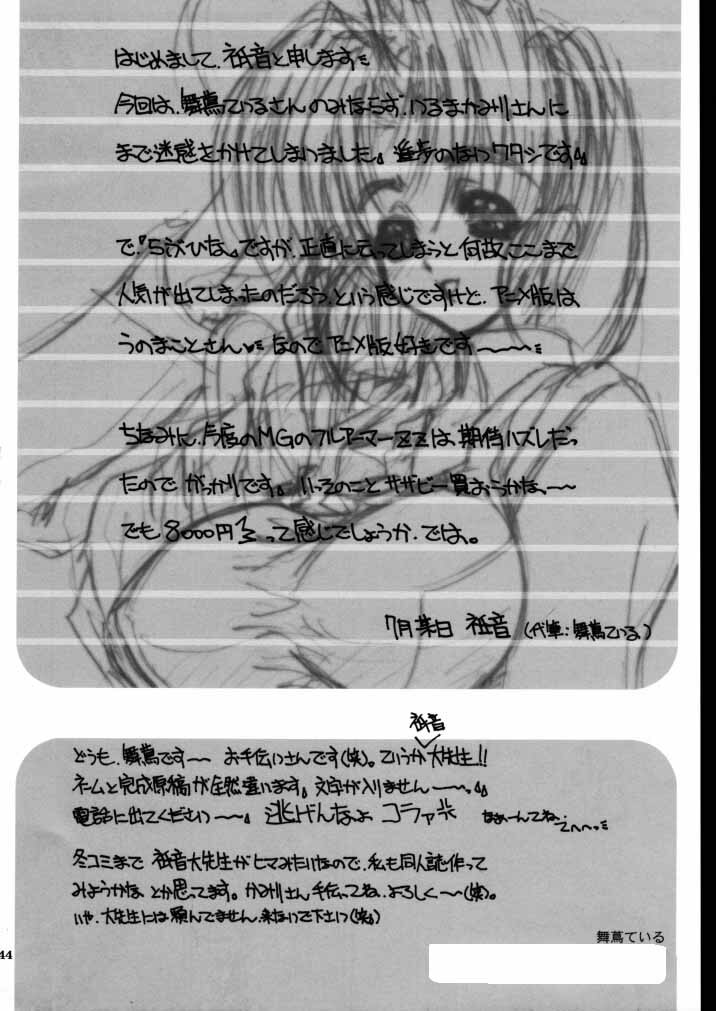 はじめまして、祇音と申します
今回は、舞蔦ているさんのみならず、いるまかみりさんに
まで迷惑をかけてしまいました。進歩のないワタシです
で『らぶひな』ですが、正直に云ってしまうと何故、ここまで
人気が出てしまったのだろう、という感じですけど、アニメ版は
うのまことさん なのでアニメ版好きです〜〜
ちなみに、今度のMGのフルアーマーZZは、期待ハズレだっ
たので がっかりです。いっそのこと サザビー買おうかな、〜〜
でも8000円 って感じでしょうか、では。
7月某日 祇音 (代筆:舞蔦ている)
祇音
どうも、舞蔦です〜〜 お手伝いさんです(笑)。ていうか大先生!!
ネームと完成原稿が全然違います。文字が入りません〜〜。
電話に出てください〜〜 逃げんなよ コラァ なぁーんてね、てへへっ
冬コミまで 祇音大先生がヒマみたいなので、私も同人誌作って
みようかな、とか思ってます。かみりさん手伝ってね、よろしく〜〜(笑)。
いや、大先生には頼んでません、来ないで下さいっ(笑)
舞蔦ている
44